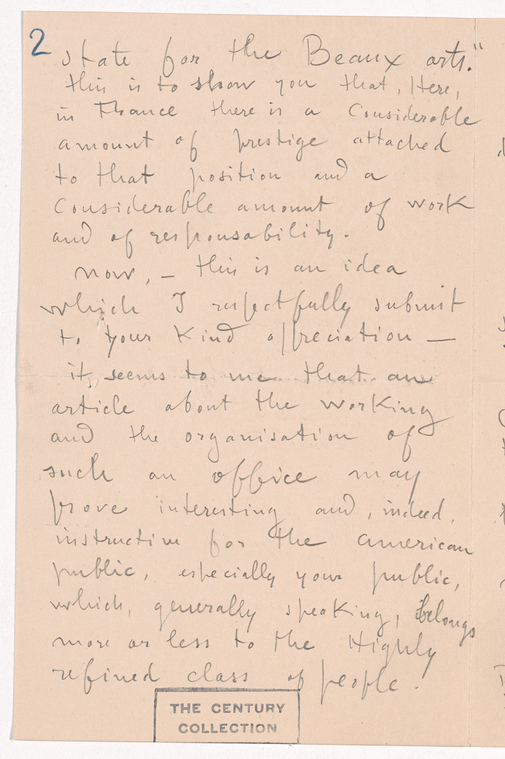 2
State for the Beaux arts."
this is to show you that, Here,
in France there is a Considerable
amount of prestige attached
to that position and a
Considerable amount of work
and of responsability.
now, — this is an idea
which I respectfully submit
to your Kind appreciation —
it seems to me that an
article about the working
and the organisation of
such an office may
prove interesting and, indeed,
instructive for the american
public, especially your public,
which, generally speaking, belongs
more or less to the Highly
refined class of people.
THE CENTURY
COLLECTION